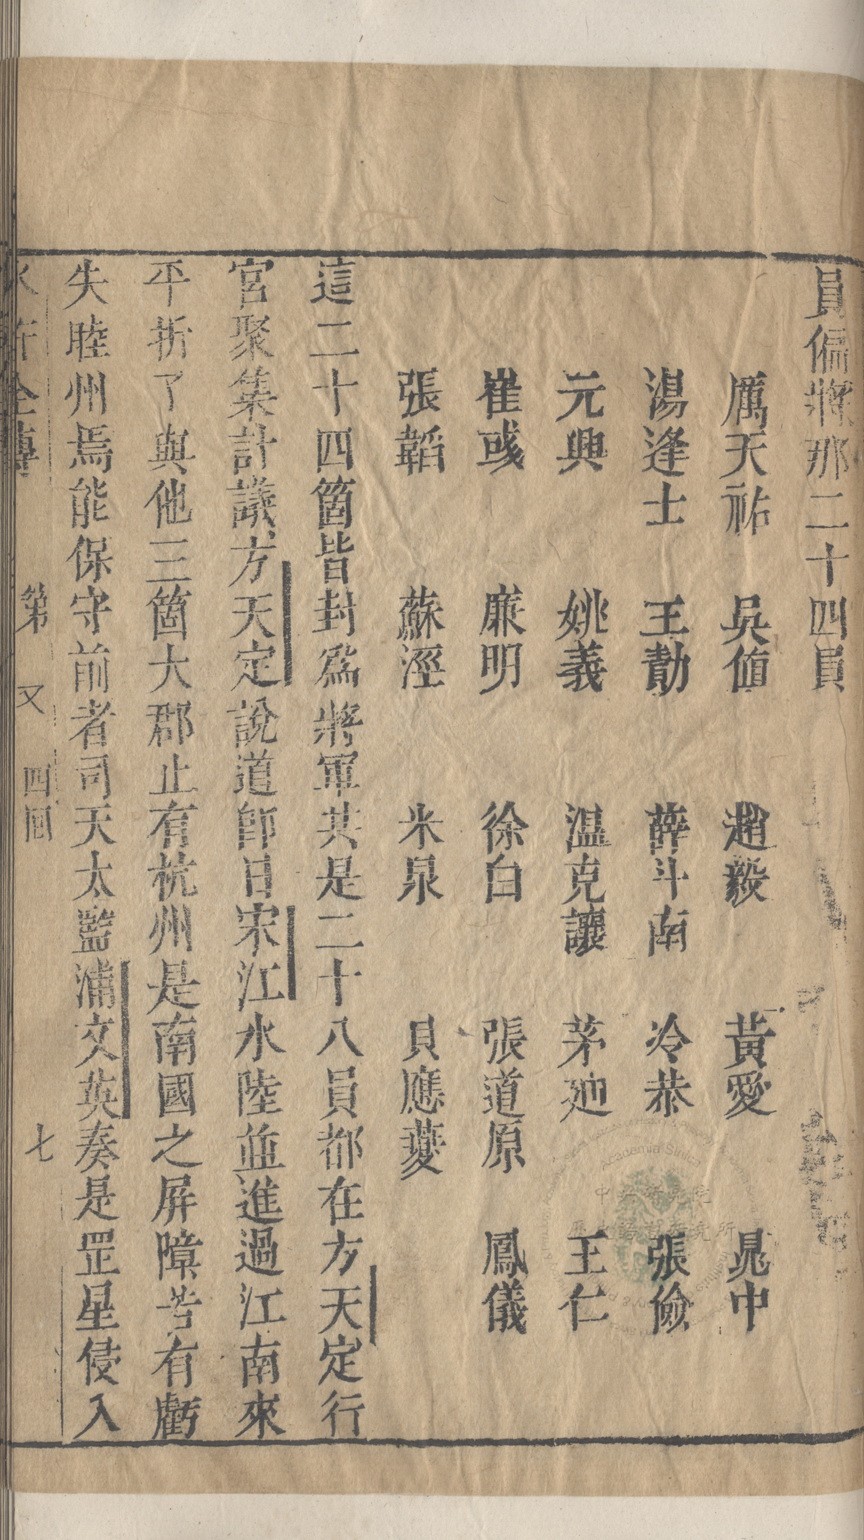 員偏將那二十四員
厲天祐 吳值 趙毅 黃愛 晁中
湯逢士 王勣 薛斗南 冷恭 張儉
元興 姚義 溫克讓 茅迪 王仁
崔彧 廉明 徐白 張道原 鳳儀
張韜 蘇涇 米泉 貝應夔
這二十四箇皆封爲將軍共是二十八員都在方天定行
宮聚集計議方天定說道卽日宋江水陸並進過江南來
平折了與他三箇大郡止有杭州是南國之屏障若有虧
失睦州焉能保守前者司天太監浦文英奏是罡星侵入
水滸全傳 第又四回 七